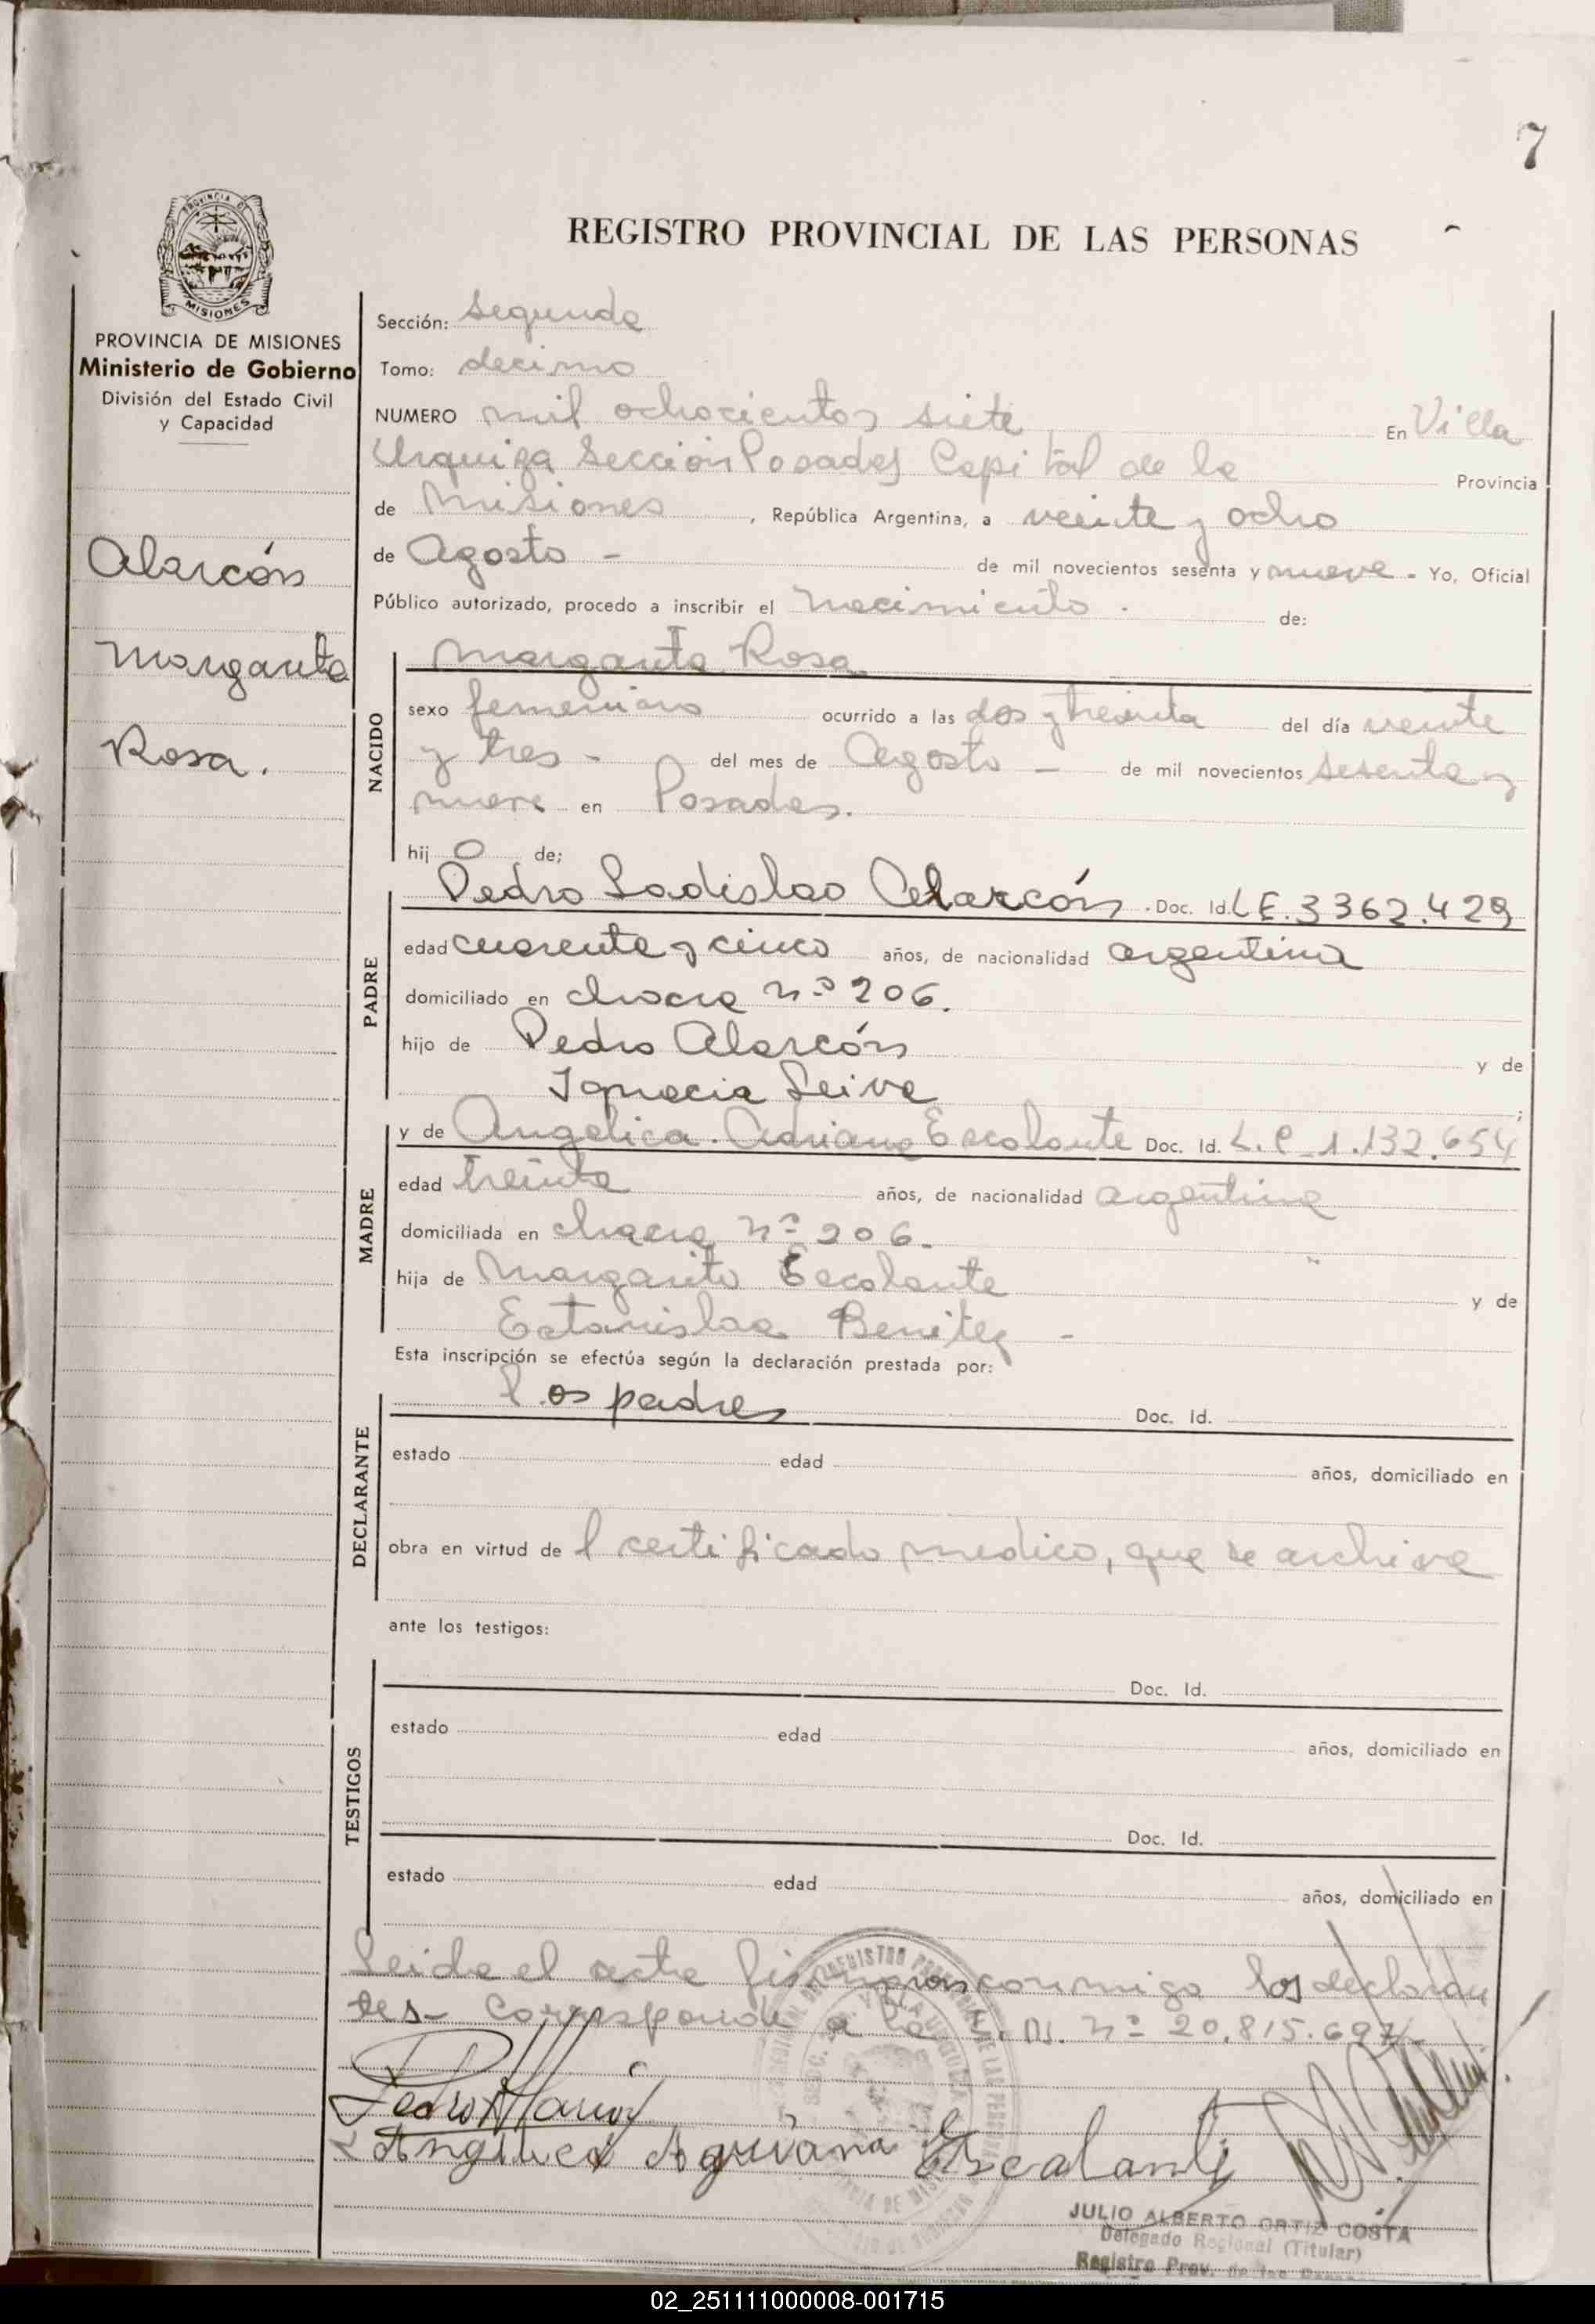 7
REGISTRO PROVINCIAL DE LAS PERSONAS
PROVINCIA DE
MISIONES
PROVINCIA DE MISIONES
Ministerio de Gobierno
División del Estado Civil
y Capacidad
Alarcón
Margarita
Rosa.
Sección: Segunda
Tomo: decimo
NUMERO mil ochocientos siete En Villa
Urquiza Sección Posadas Capital de la Provincia
de Misiones, República Argentina, a veinte y ocho
de Agosto - de mil novecientos sesenta y nueve - Yo, Oficial
Público autorizado, procedo a inscribir el nacimiento. de:
NACIDO
Margarita Rosa
sexo femenino ocurrido a las dos y treinta del día veinte
y tres - del mes de Agosto - de mil novecientos sesenta y
nueve en Posadas.
hij a de;
PADRE
Pedro Ladislao Alarcón. Doc. Id. L E. 3362.429
edad cuarenta y cinco años, de nacionalidad argentina
domiciliado en chacra nº 206.
hijo de Pedro Alarcón y de
Ignacia Leiva ;
MADRE
y de Angelica Adriana Escalante Doc. Id. L. C 1.132.654
edad treinta años, de nacionalidad argentina
domiciliada en chacra nº 206.
hija de Margarito Escalante y de
Estanislaa Benitez -
Esta inscripción se efectúa según la declaración prestada por:
DECLARANTE
los padres Doc. Id.
estado edad años, domiciliado en
obra en virtud de l certificado medico, que se archiva
ante los testigos:
TESTIGOS
Doc. Id.
estado edad años, domiciliado en
Doc. Id.
estado edad años, domiciliado en
Leida el acta firmaron conmigo los declaran
tes- Corresponde a la N. nº 20.815.697
Pedro Alarcón
Angelica Agriana Escalante
JULIO ALBERTO ORTIZ COSTA
Delegado Regional (Titular)
Registro Prov. de las
02_251111000008-001715